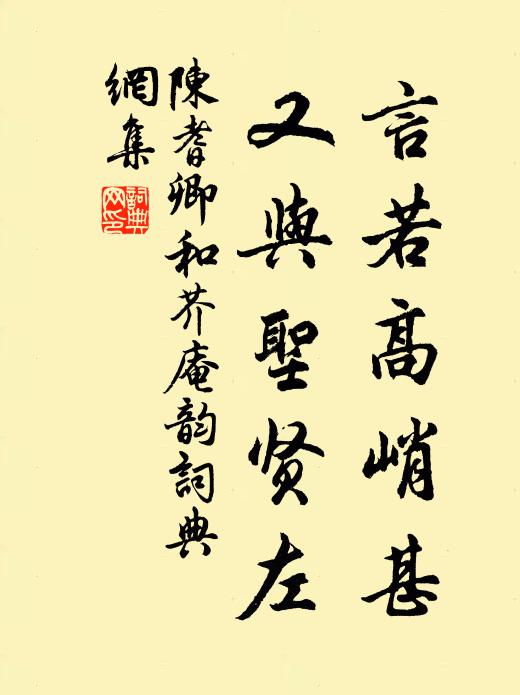 言若高峭甚
又與聖贤左
陳耆卿和芥庵韵詞典
網集
詞典
网印